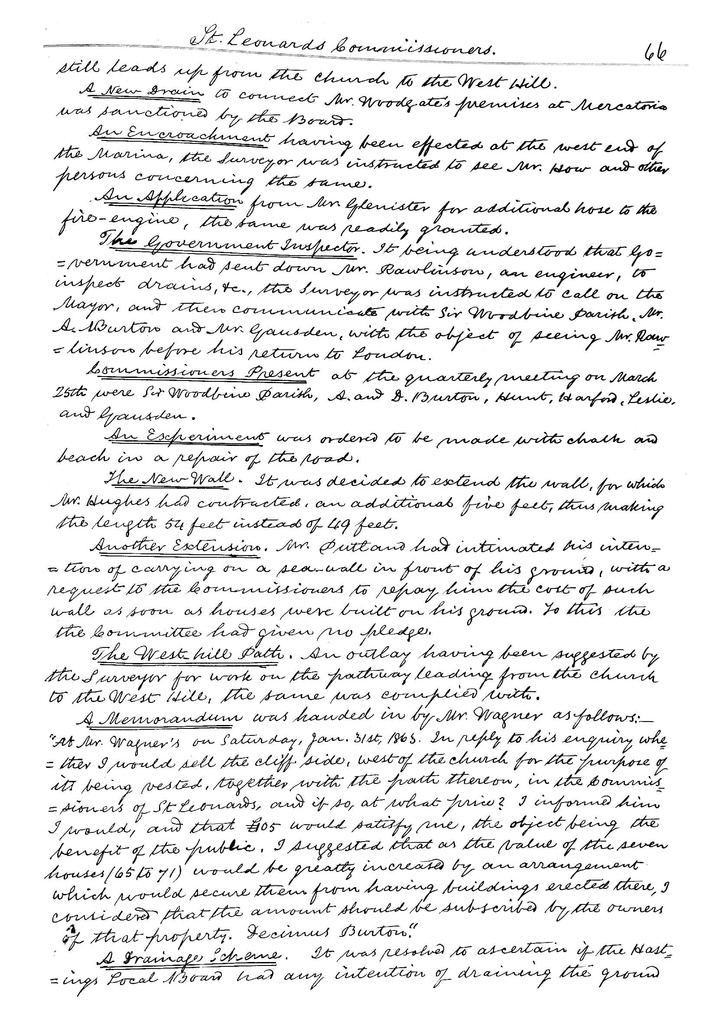 St. Leonards Commissioners. 66
still leads up from the church to the West Hill.
A New Drain to connect Mr. Woodgate's premises at Mercatoria
was sanctioned by the Board.
An Encroachment having been effected at the west end of
the Marina, the Surveyor was instructed to see Mr. How and other
persons concerning the same.
An Application from Mr. Glenister for additional hose to the
fire-engine, the same was readily granted.
The Government Inspector. It being understood that Go=
=vernment had sent down Mr. Rawlinson, an engineer, to
inspect drains, &c., the Surveyor was instructed to call on the
Mayor, and then communicate with Sir Woodbine Parish, Mr.
A. Burton and Mr. Gausden, with the object of seeing Mr. Raw
=linson before his return to London.
Commissioners Present at the quarterly meeting on March
25th were Sir Woodbine Parish, A. and D. Burton, Hunt, Harford, Leslie,
and Gausden.
An Experiment was ordered to be made with chalk and
beach in a repair of the road.
The New Wall. It was decided to extend the wall, for which
Mr. Hughes had contracted, an additional five feet, thus making
the length 54 feet instead of 49 feet.
Another Extension. Mr. Putland had intimated his inten=
=tion of carrying on a sea-wall in front of his ground, with a
request to the Commissioners to repay him the cost of such
wall as soon as houses were built on his ground. To this the
the Committee had given no pledge.
The West hill Path. An outlay having been suggested by
the Surveyor for work on the pathway leading from the church
to the West Hill, the same was complied with.
A Memorandum was handed in by Mr. Wagner as follows:—
"At Mr. Wagner's on Saturday, Jan. 31st, 1863. In reply to his enquiry whe=
=ther I would sell the cliff side, west of the church for the purpose of
its being vested, together with the path thereon, in the Commis=
=sioners of St Leonards, and if so, at what price? I informed him
I would, and that £105 would satisfy me, the object being the
benefit of the public. I suggested that as the value of the seven
houses (65 to 71) would be greatly increased by an arrangement
which would secure them from having buildings erected there, I
considered that the amount should be subscribed by the owners
of that property. Decimus Burton."
A Drainage Scheme. It was resolved to ascertain if the Hast=
=ings Local Board had any intention of draining the ground